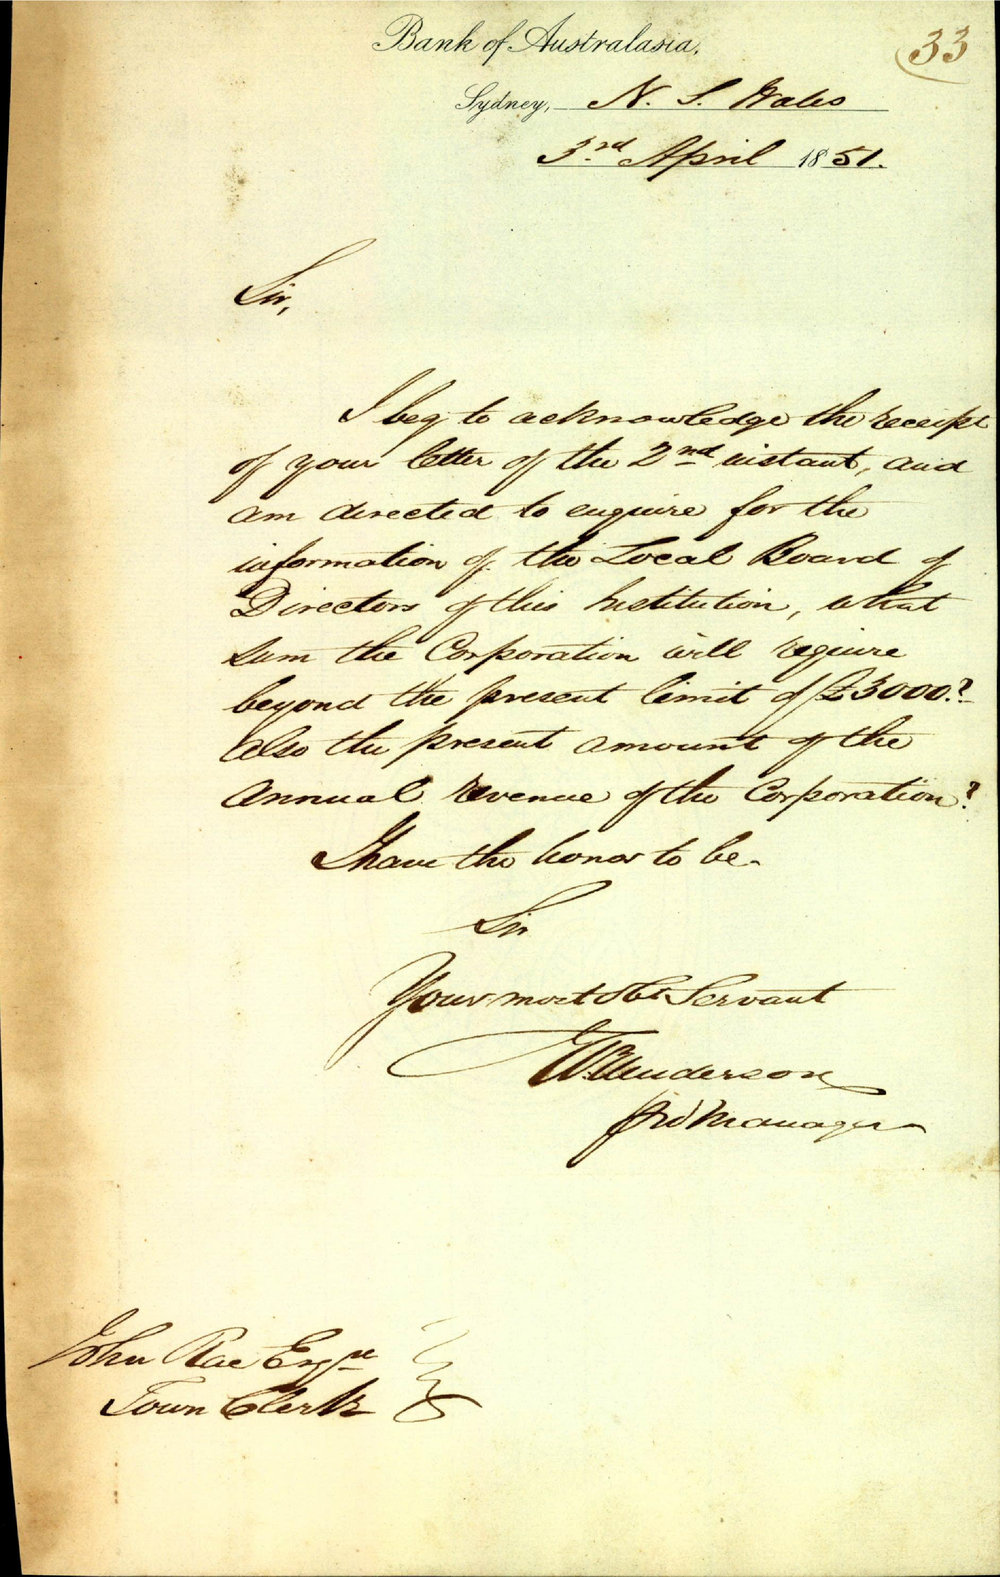 Bank of Australasia.
33
Sydney, N. S. Wales
3rd April 1851.
Sir,
I beg to acknowledge the receipt
of your letter of the 2nd instant, and
am directed to enquire for the
information of the Local Board of
Directors of this Institution, what
sum the Corporation will require
beyond the present limit of £3000.?
also the present amount of the
annual revenue of the Corporation?
I have the honor to be.
Sir
Your most Obt Servant
Henderson
Manager
John Rae Esqre
Town Clerk